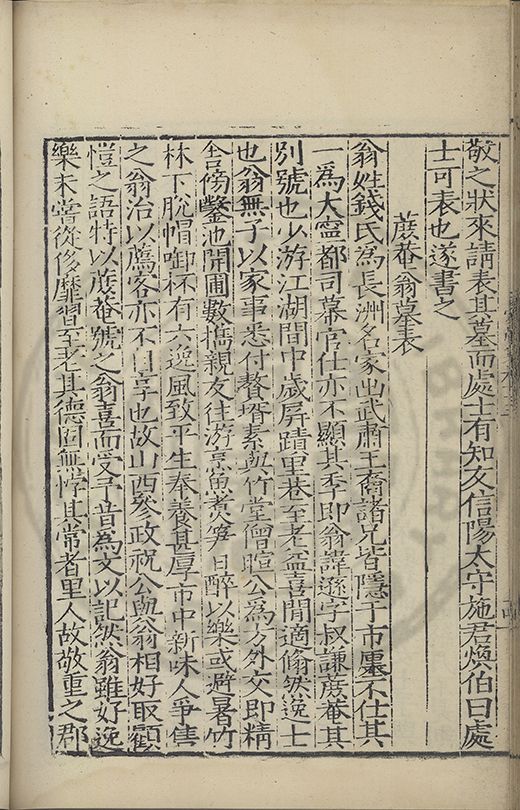 敬之狀來請表其墓而處士有知友信陽太守施君煥伯曰處
士可表也遂書之
蔗菴翁墓表
翁姓錢氏為長洲名家出武肅王裔諸兄皆隱于市廛不仕其
一為大寧都司幕官仕亦不顯其季即翁諱遜字叔謙蔗菴其
別號也少游江湖間中歲屏蹟里巷至老益喜閒適翛然逸士
也翁無子以家事悉付贅壻素與竹堂僧暄公為方外交即精
舍傍鑿池開圃數擕親友往游烹魚煮笋日醉以樂或避暑竹
林下脫帽啣杯有六逸風致平生奉養甚厚市中新味人爭售
之翁治以薦客亦不自享也故山西參政祝公與翁相好取顧
愷之語特以蔗菴號之翁喜而受予昔為文以記然翁雖好逸
樂未嘗從侈靡習至老其德固無悖其常者里人故敬重之郡